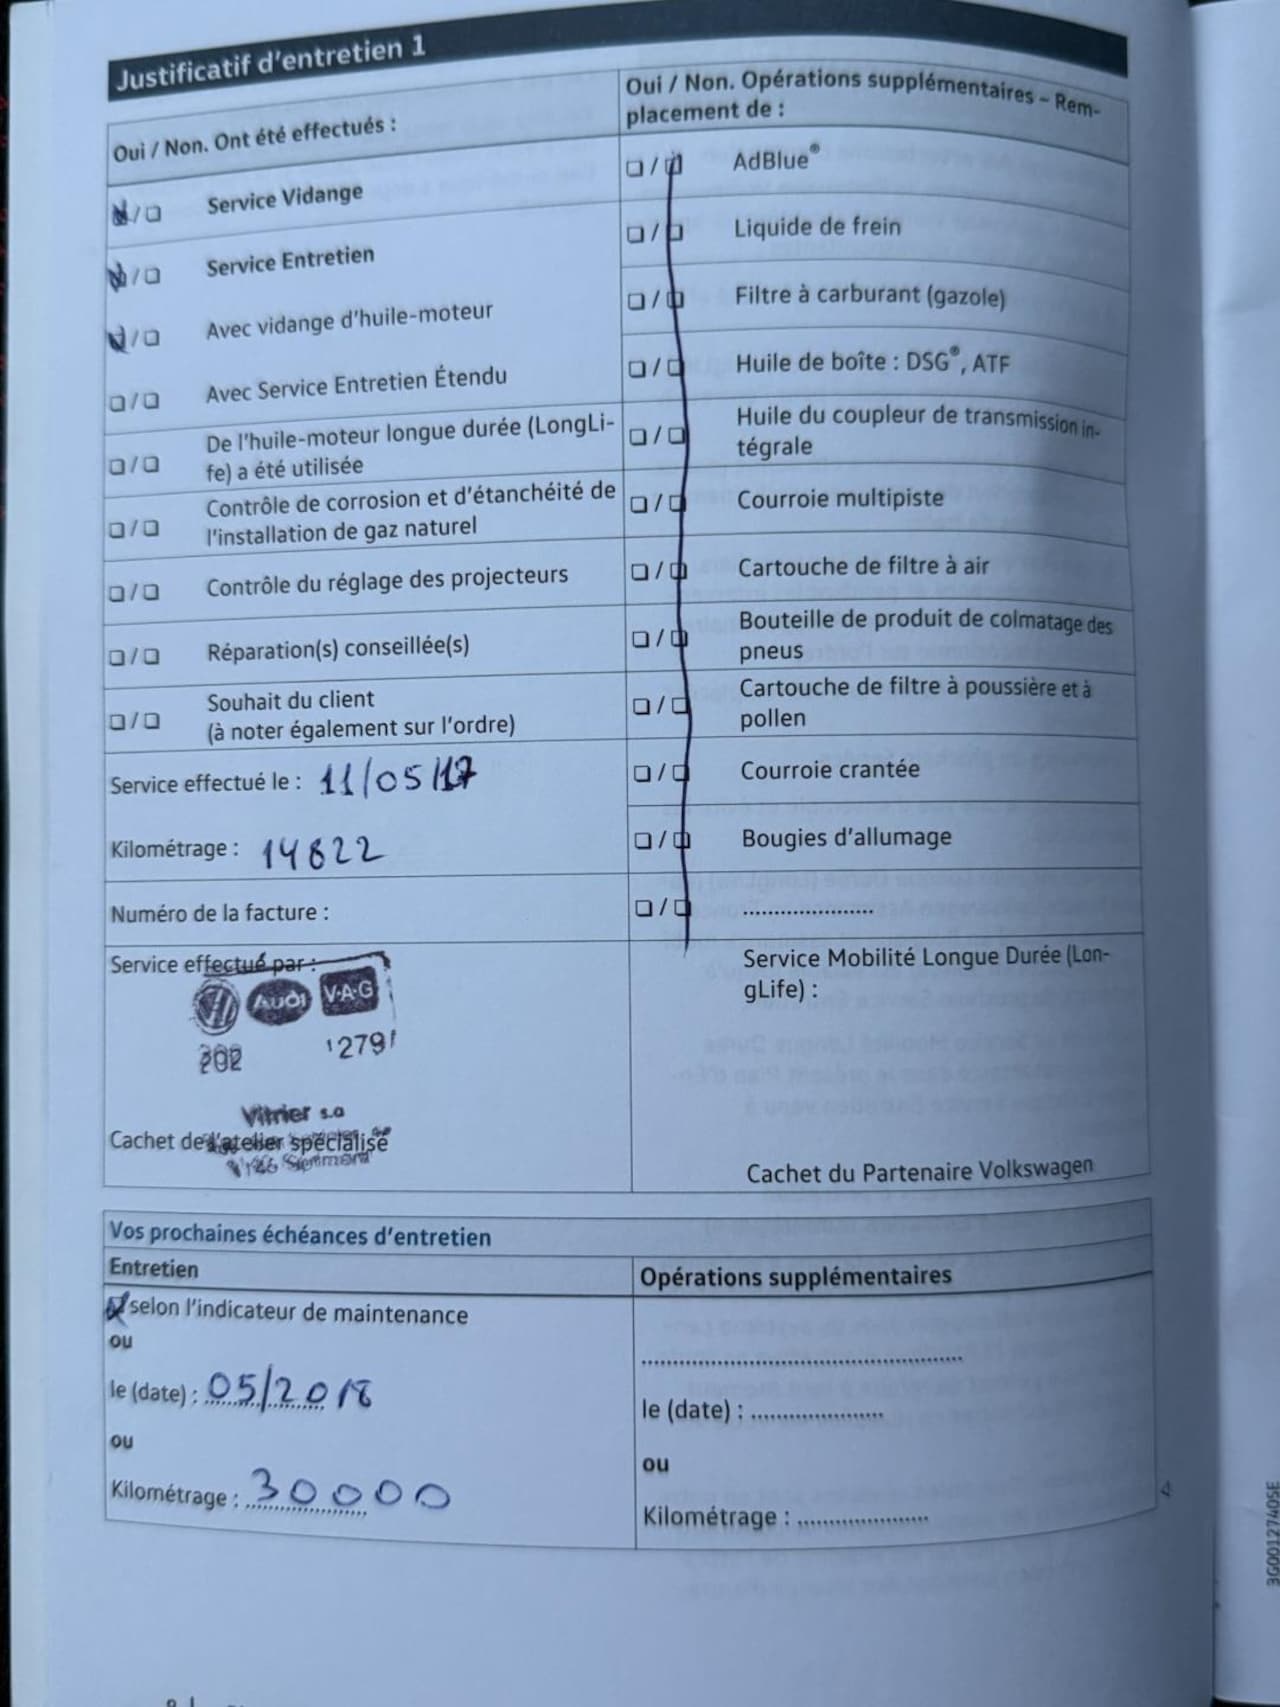 Justificatif d'entretien 1
Oui / Non. Ont été effectués :
❏/❏ Service Vidange
❏/❏ Service Entretien
❏/❏ Avec vidange d'huile-moteur
❏/❏ Avec Service Entretien Étendu
❏/❏ De l'huile-moteur longue durée (LongLi-
fe) a été utilisée
❏/❏ Contrôle de corrosion et d'étanchéité de
l'installation de gaz naturel
❏/❏ Contrôle du réglage des projecteurs
❏/❏ Réparation(s) conseillée(s)
❏/❏ Souhait du client
(à noter également sur l'ordre)
Service effectué le : 11/05/17
Kilométrage : 14822
Numéro de la facture :
Service effectué par :
Audi V·A·G
202 1279
Vitrier s.a
Cachet de l'atelier spécialisé
Oui / Non. Opérations supplémentaires – Rem-
placement de :
❏/❏ AdBlue®
❏/❏ Liquide de frein
❏/❏ Filtre à carburant (gazole)
❏/❏ Huile de boîte : DSG®, ATF
❏/❏ Huile du coupleur de transmission in-
tégrale
❏/❏ Courroie multipiste
❏/❏ Cartouche de filtre à air
❏/❏ Bouteille de produit de colmatage des
pneus
❏/❏ Cartouche de filtre à poussière et à
pollen
❏/❏ Courroie crantée
❏/❏ Bougies d'allumage
❏/❏ .....................
Service Mobilité Longue Durée (Lon-
gLife) :
Cachet du Partenaire Volkswagen
Vos prochaines échéances d'entretien
Entretien
selon l'indicateur de maintenance
ou
le (date) : 05/2018
ou
Kilométrage : 30000
Opérations supplémentaires
..................................................
le (date) : .....................
ou
Kilométrage : .....................
3G0012740SE